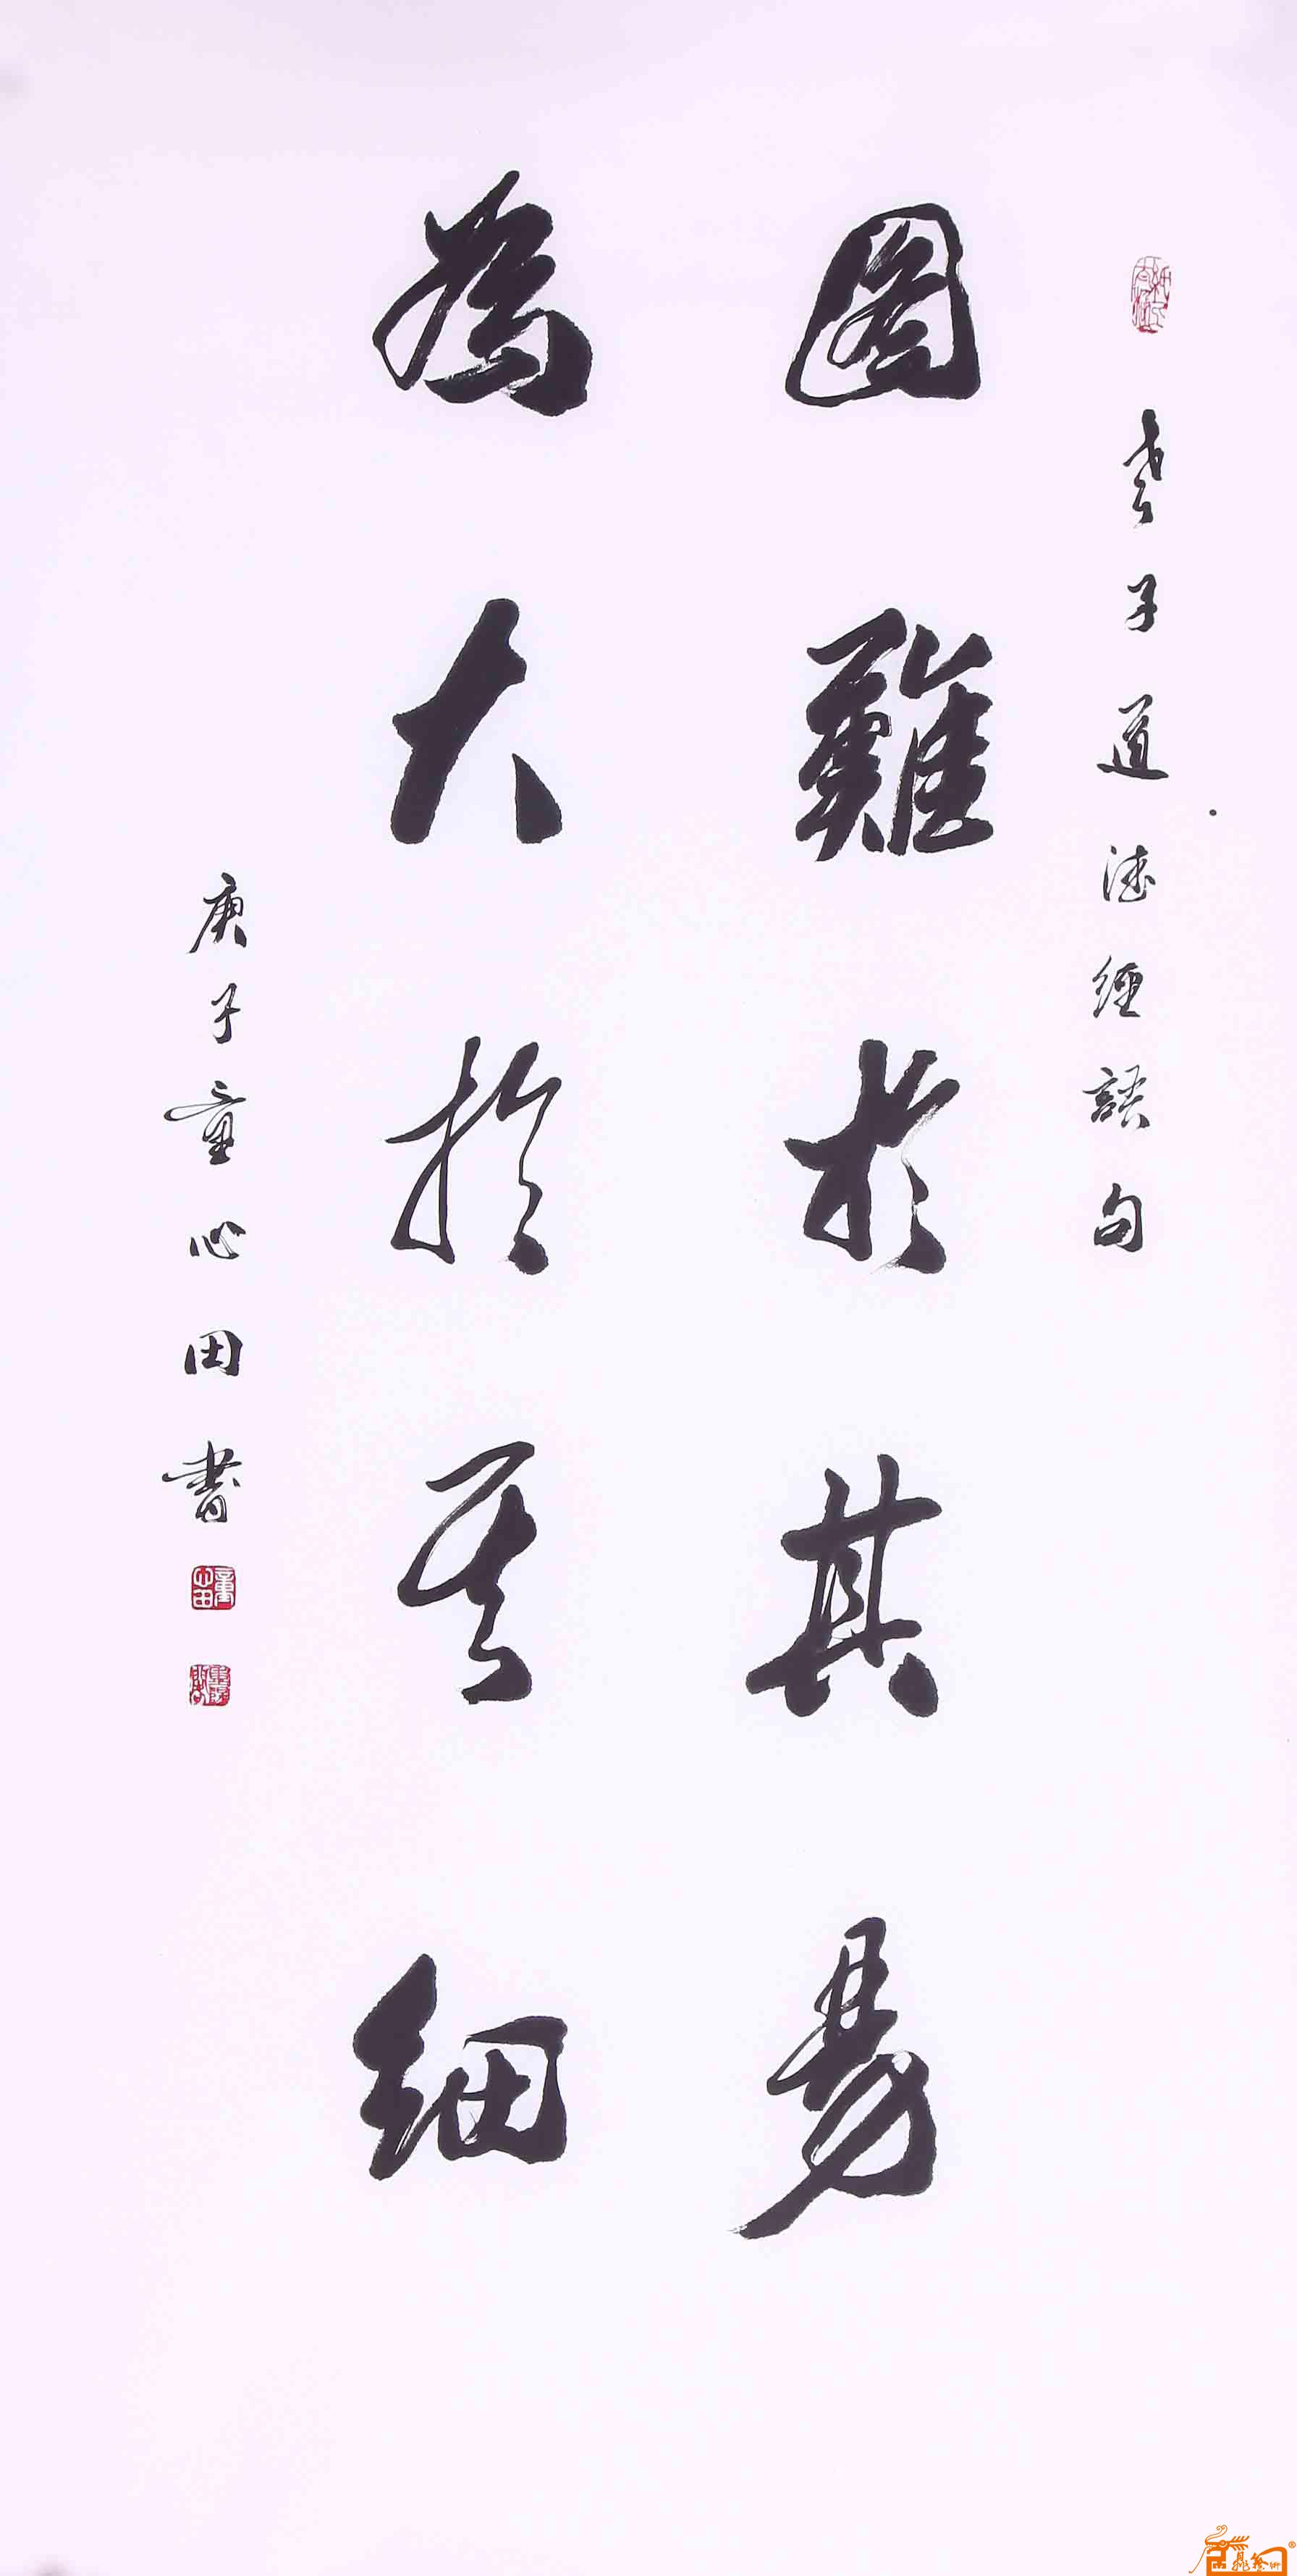 老子道德經語句
圖難於其易
為大於其細
庚子童心田書
童心田